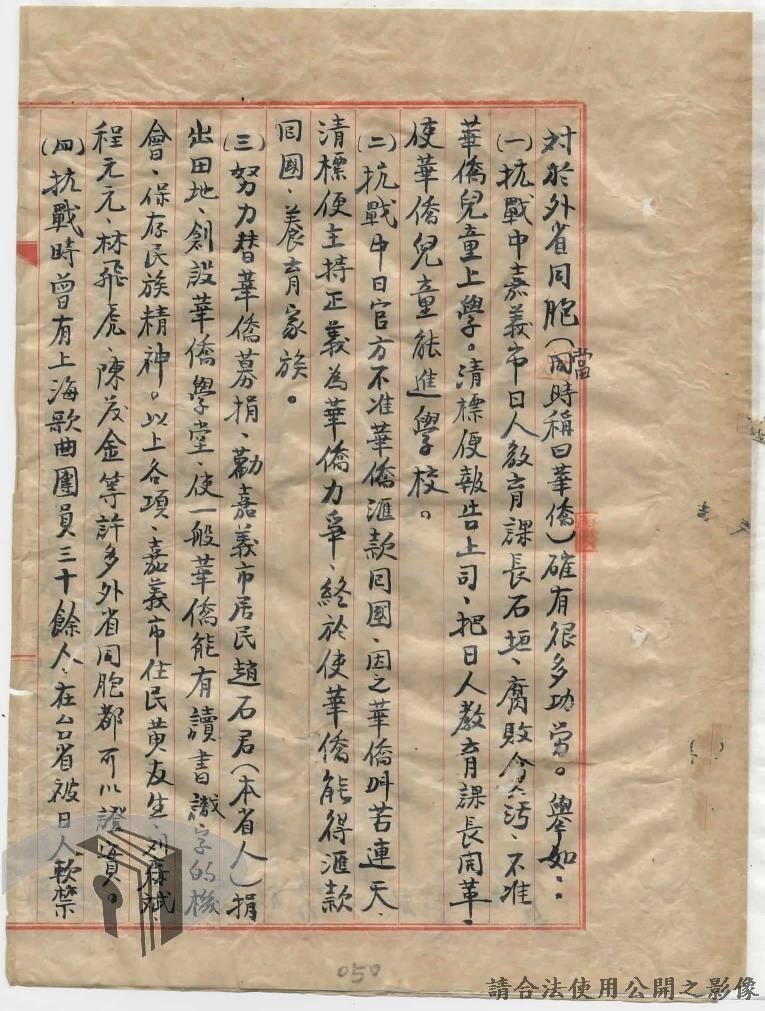 対於外省同胞(當時稱曰華僑)確有很多功劳。舉如:.
(一)抗戰中嘉義市日人教育課長石垣、腐敗貪污、不准
華僑兒童上學。清標便報告上司、把日人教育課長開革、
使華僑兒童能進學校。
(二)抗戰中日官方不准華僑滙款囘國、因之華僑叫苦連天、
清標便主持正義為華僑力爭、終於使華僑能得滙款
囘國、養育家族。
(三)努力替華僑募捐、勸嘉義市居民趙石君(本省人)捐
出田地、創設華僑學堂、使一般華僑能有讀書識字的機
會、保存民族精神。以上各項、嘉義市住民黄友生、刘森斌、
程元元、林飛虎、陳茂金等許多外省同胞都可以證實。
(四)抗戰時曾有上海歌曲團員三十餘人、在台省被日人軟禁
050
請合法使用公開之影像